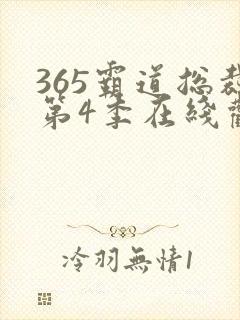 365霸道总裁
第4季在綫觀
冷羽無情1